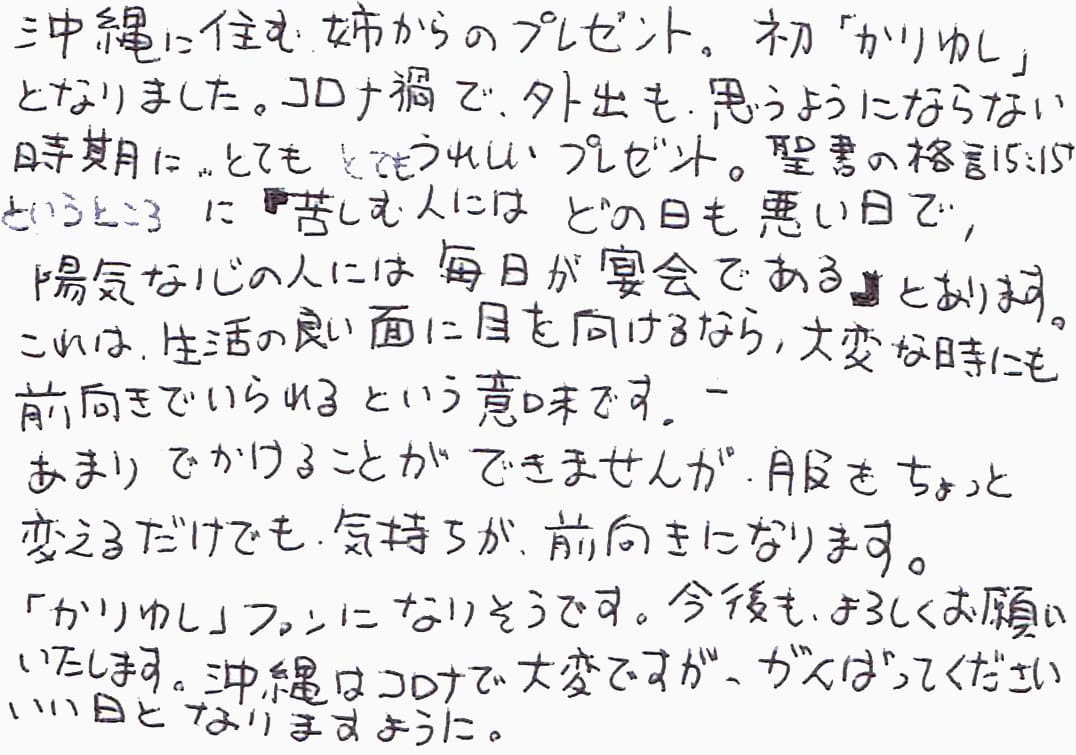 沖縄に住む姉からのプレゼント。初「かりゆし」
となりました。コロナ禍で、外出も、思うようにならない
時期に…とても とてもうれしい プレゼント。聖書の格言15:15
というところ に『苦しむ人には どの日も悪い日で,
陽気な心の人には毎日が宴会である』とあります。
これは、生活の良い面に目を向けるなら,大変な時にも
前向きでいられるという意味です。ー
あまりでかけることができませんが、服をちょっと
変えるだけでも、気持ちが、前向きになります。
「かりゆし」ファンになりそうです。今後も、よろしくお願い
いたします。沖縄はコロナで大変ですが、がんばってください
いい日となりますように。